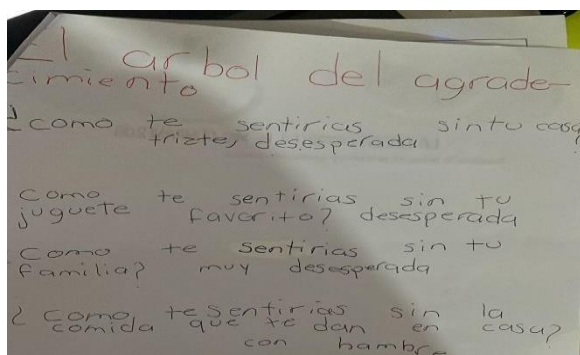 El arbol del agrade-
cimiento
¿como te sentirias sin tu casa?
trizte, desesperada
Como te sentirias sin tu
juguete favorito? desesperada
Como te sentirias sin tu
familia? muy desesperada
¿Como te sentirias sin la
comida que te dan en casa?
con hambre